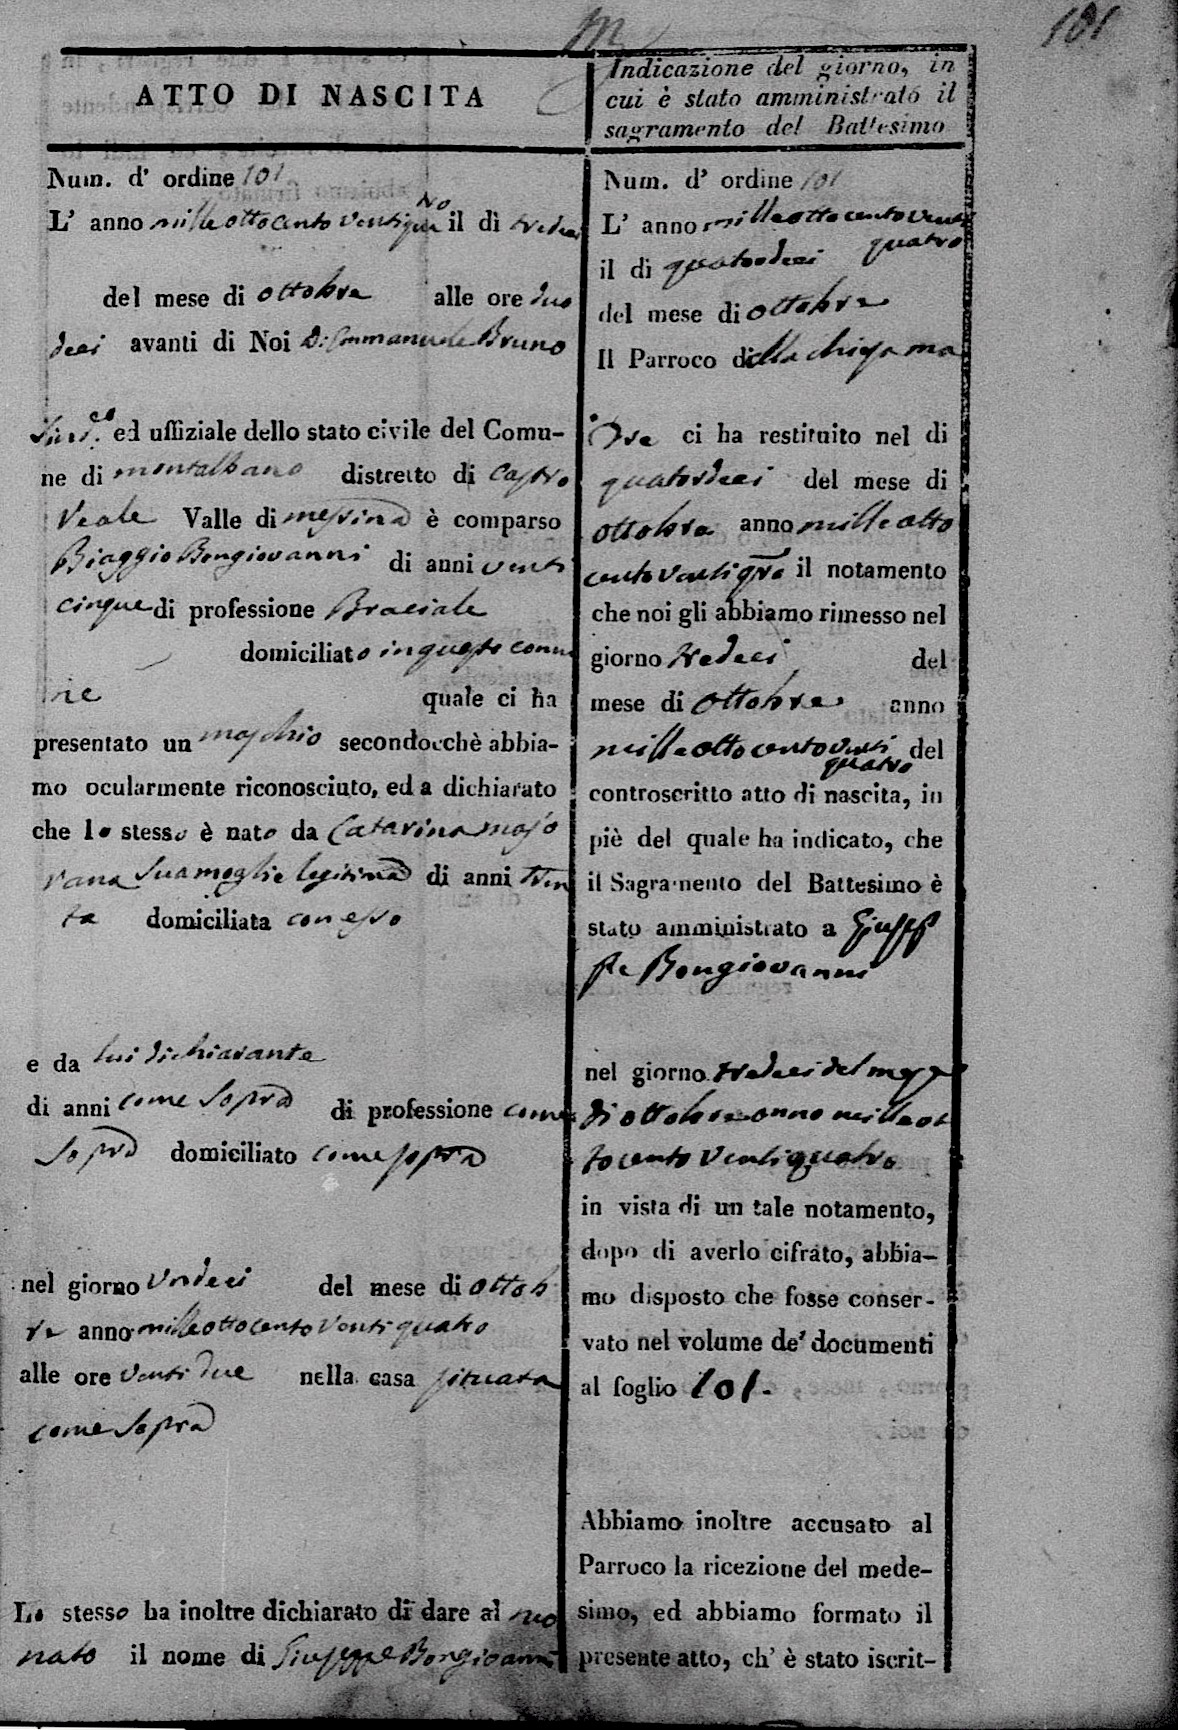 m
101
ATTO DI NASCITA
Num. d' ordine 101
L' anno mille ottocento venti il dì tredeci
del mese di ottobre alle ore duo
deci avanti di Noi D. Emmanuele Bruno
Sind.co ed uffiziale dello stato civile del Comu-
ne di montalbano distretto di Castro
reale Valle di messina è comparso
Biaggio Bongiovanni di anni venti
cinque di professione Braciale
domiciliato in questo comu
ne quale ci ha
presentato un maschio secondocchè abbia-
mo ocularmente riconosciuto, ed a dichiarato
che lo stesso è nato da Catarina majo
rana sua moglie legitima di anni tren
ta domiciliata con esso
e da lui dichiarante
di anni come sopra di professione come
sopra domiciliato come sopra
nel giorno undeci del mese di ottob
re anno mille ottocento venti quatro
alle ore venti due nella casa situata
come sopra
Lo stesso ha inoltre dichiarato di dare al neo
nato il nome di Giuseppe Bongiovanni
Indicazione del giorno, in
cui è stato amministrato il
sagramento del Battesimo
Num. d' ordine 101
L' anno mille ottocento venti
quatro
il di quatordeci
del mese di ottobre
Il Parroco della chiesa ma
dre ci ha restituito nel di
quatordeci del mese di
ottobre anno mille otto
cento venti qtro il notamento
che noi gli abbiamo rimesso nel
giorno tredeci del
mese di ottobre anno
mille ottocento venti del
quatro
controscritto atto di nascita, in
piè del quale ha indicato, che
il Sagramento del Battesimo è
stato amministrato a Giusep
pe Bongiovanni
nel giorno tredeci del mese
di ottobre anno mille ot
tocento venti quatro
in vista di un tale notamento,
dopo di averlo cifrato, abbia-
mo disposto che fosse conser-
vato nel volume de' documenti
al foglio 101.
Abbiamo inoltre accusato al
Parroco la ricezione del mede-
simo, ed abbiamo formato il
presente atto, ch' è stato iscrit-